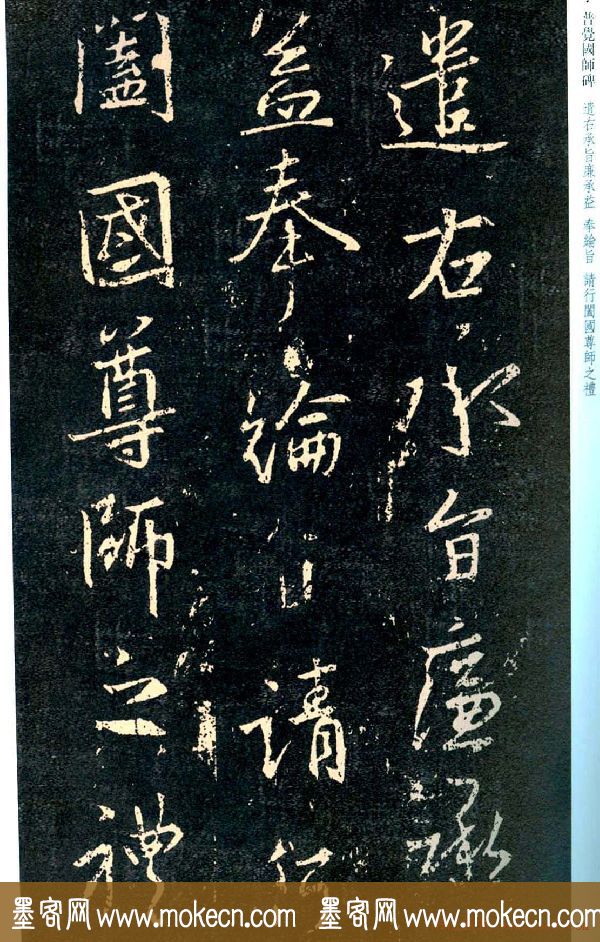 普覺國師碑 遣右承旨廉承益 奉綸旨 請行闔國尊師之禮
遣右承旨廉承
益奉綸旨請行
闔國尊師之禮
墨客网 www.mokecn.com 墨客网 www.mokecn.com